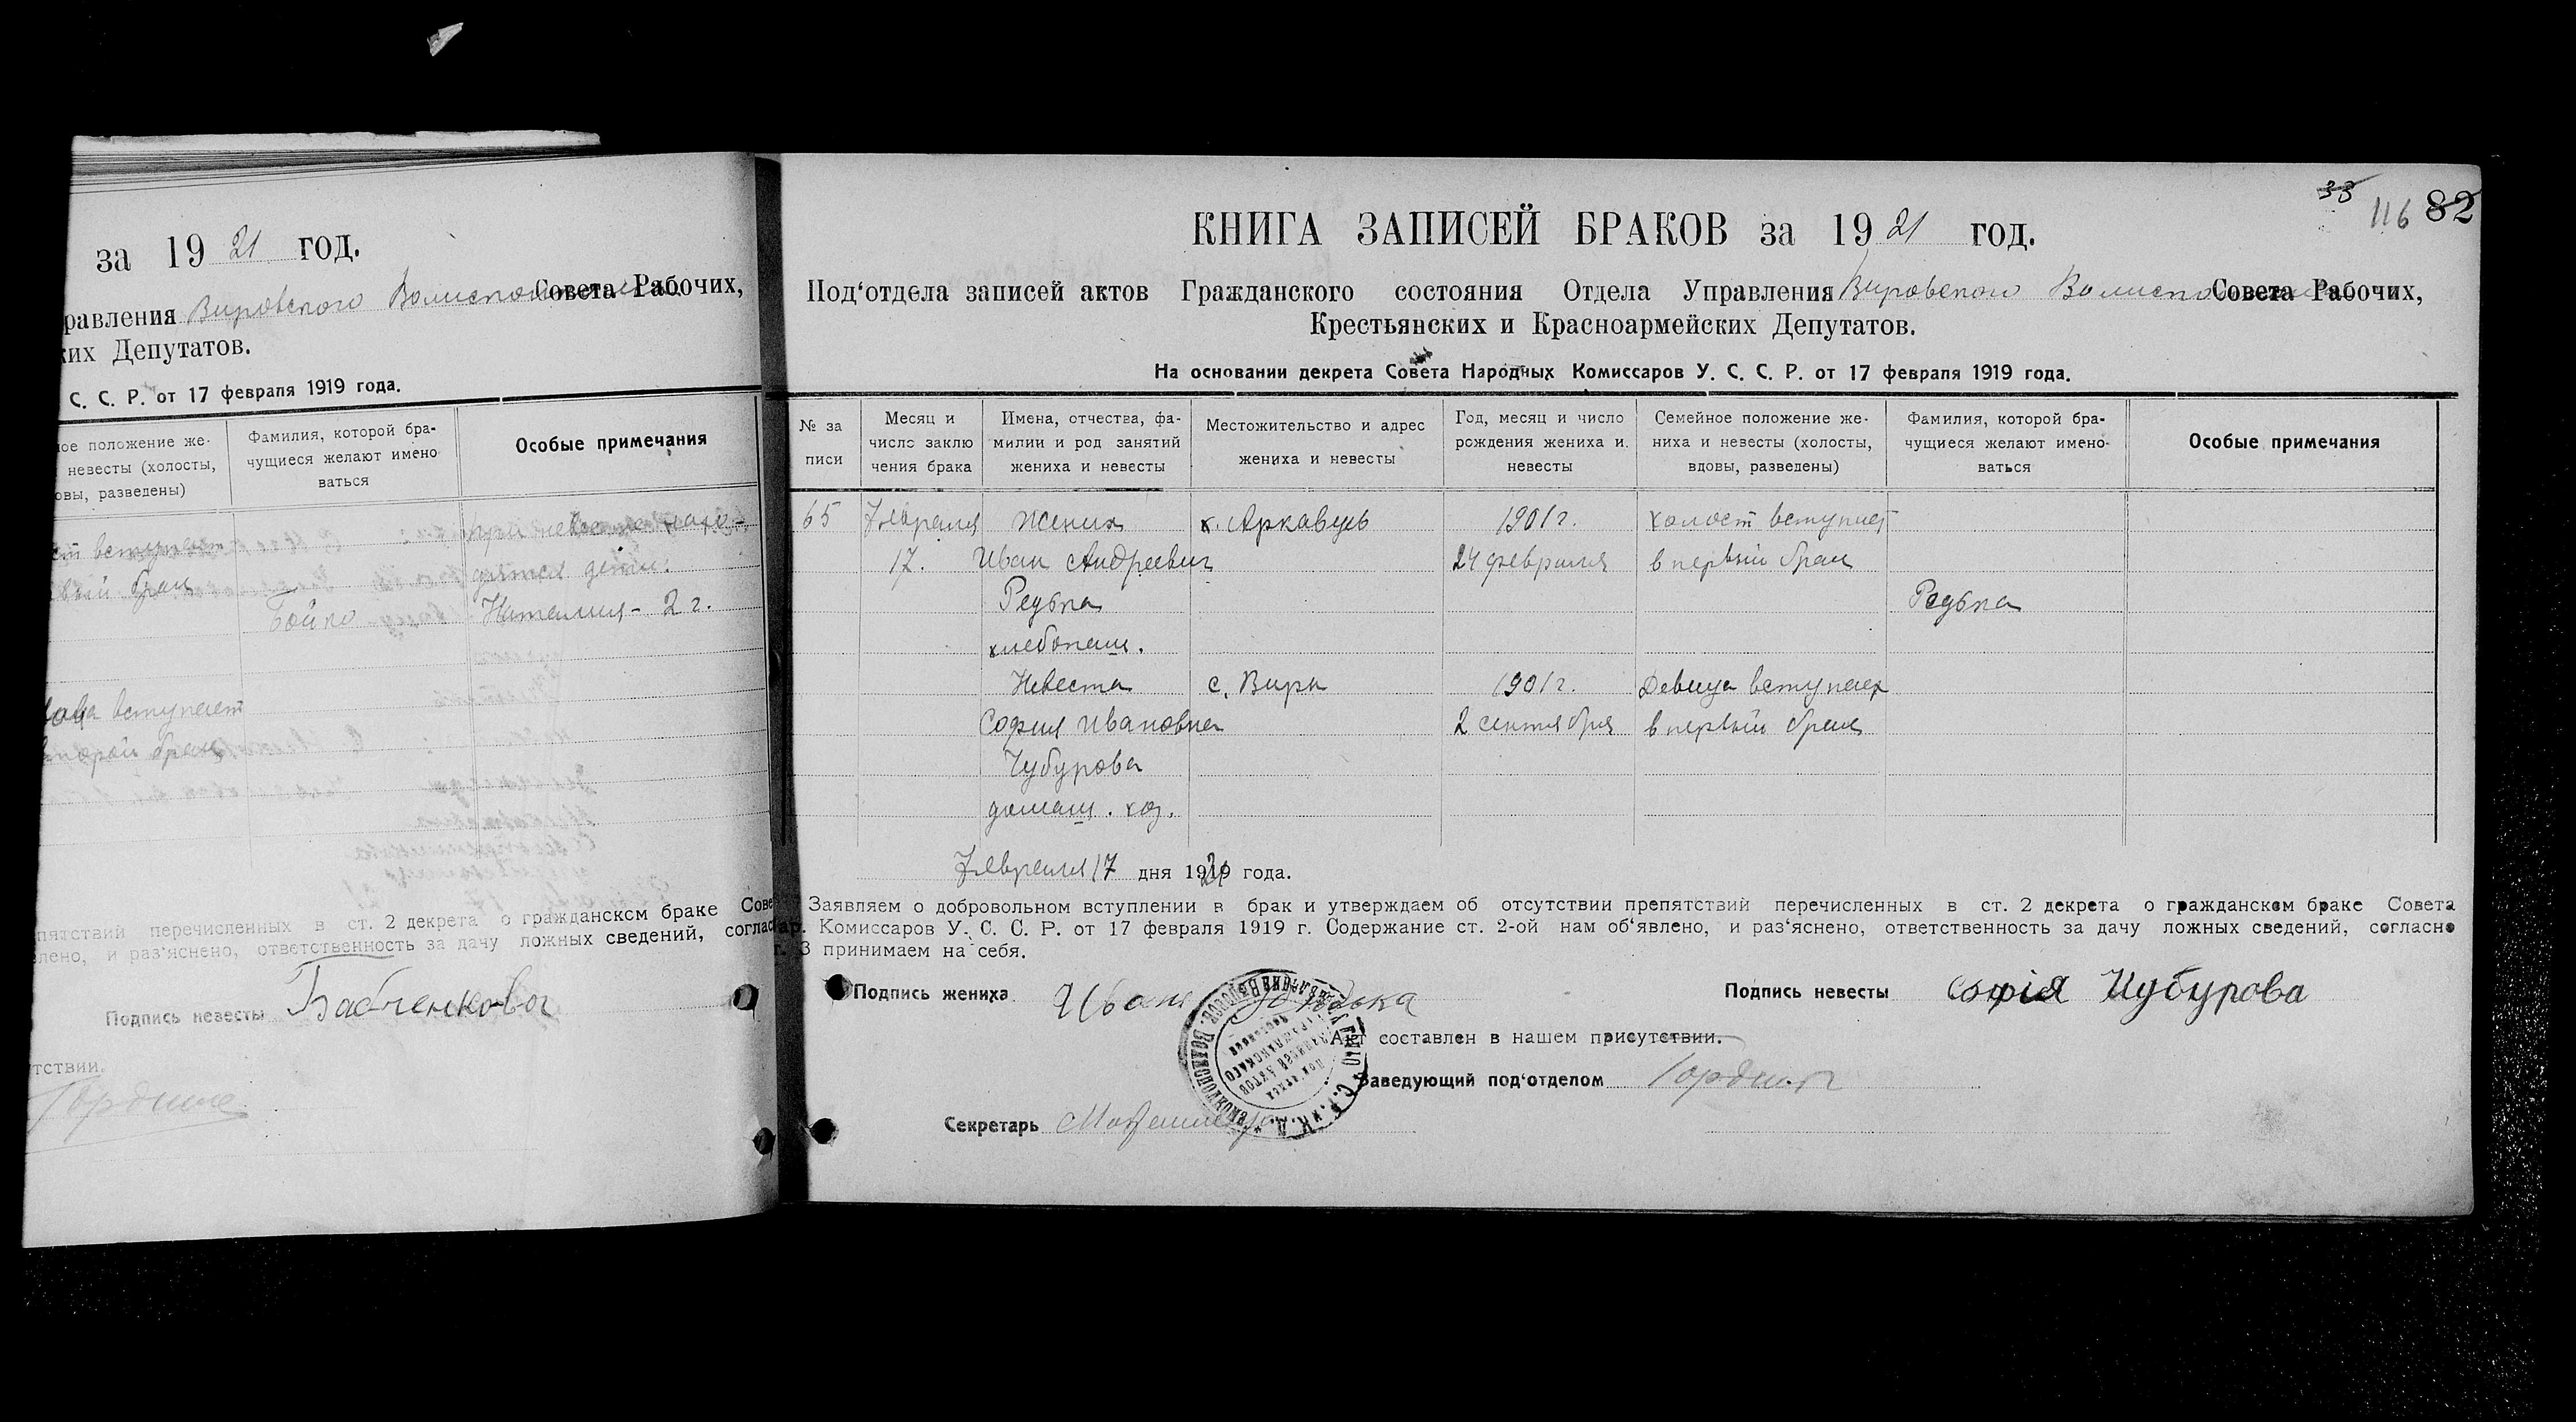 за 1921 год.
равления Вировского Волисполкома Совета Рабочих,
ких Депутатов.
С. С. Р. от 17 февраля 1919 года.
ное положение же-
невесты (холосты,
овы, разведены)
Фамилия, которой бра-
чущиеся желают имено-
ваться
Особые примечания
ст вступает
рвый брак
Бойко
при невесте нахо-
дятся дети:
Наталия - 2 г.
вступает
второй брак
пятствий перечисленных в ст. 2 декрета о гражданском браке Сове
влено, и раз‘яснено, ответственность за дачу ложных сведений, соглас
Подпись невесты Бабченкова
тствии.
Гордиенко
33 116 82
КНИГА ЗАПИСЕЙ БРАКОВ за 1921 год.
Под‘отдела записей актов Гражданского состояния Отдела Управления Вировского Волисполкома Совета Рабочих,
Крестьянских и Красноармейских Депутатов.
На основании декрета Совета Народных Комиссаров У. С. С. Р. от 17 февраля 1919 года.
№ за
писи
Месяц и
число заклю
чения брака
Имена, отчества, фа-
милии и род занятий
жениха и невесты
Местожительство и адрес
жениха и невесты
Год, месяц и число
рождения жениха и
невесты
Семейное положение же-
ниха и невесты (холосты,
вдовы, разведены)
Фамилия, которой бра-
чущиеся желают имено-
ваться
Особые примечания
65 Февраля Жених х. Аркавщь 1901 г. холост вступает
17. Иван Андреевич 24 февраля в первый брак
Редька Редька
хлебопаш.
Невеста с. Виры 1901 г. Девица вступает
София Ивановна 2 сентября в первый брак
Чубурова
домаш. хоз.
Февраля 17 дня 1921 года.
Заявляем о добровольном вступлении в брак и утверждаем об отсутствии препятствий перечисленных в ст. 2 декрета о гражданском браке Совета
ар. Комиссаров У. С. С. Р. от 17 февраля 1919 г. Содержание ст. 2-ой нам об‘явлено, и раз‘яснено, ответственность за дачу ложных сведений, согласно
г. 3 принимаем на себя.
Подпись жениха Иван Редька
Подпись невесты Софія Чубурова
Акт составлен в нашем присутствии.
Заведующий под‘отделом
Секретарь